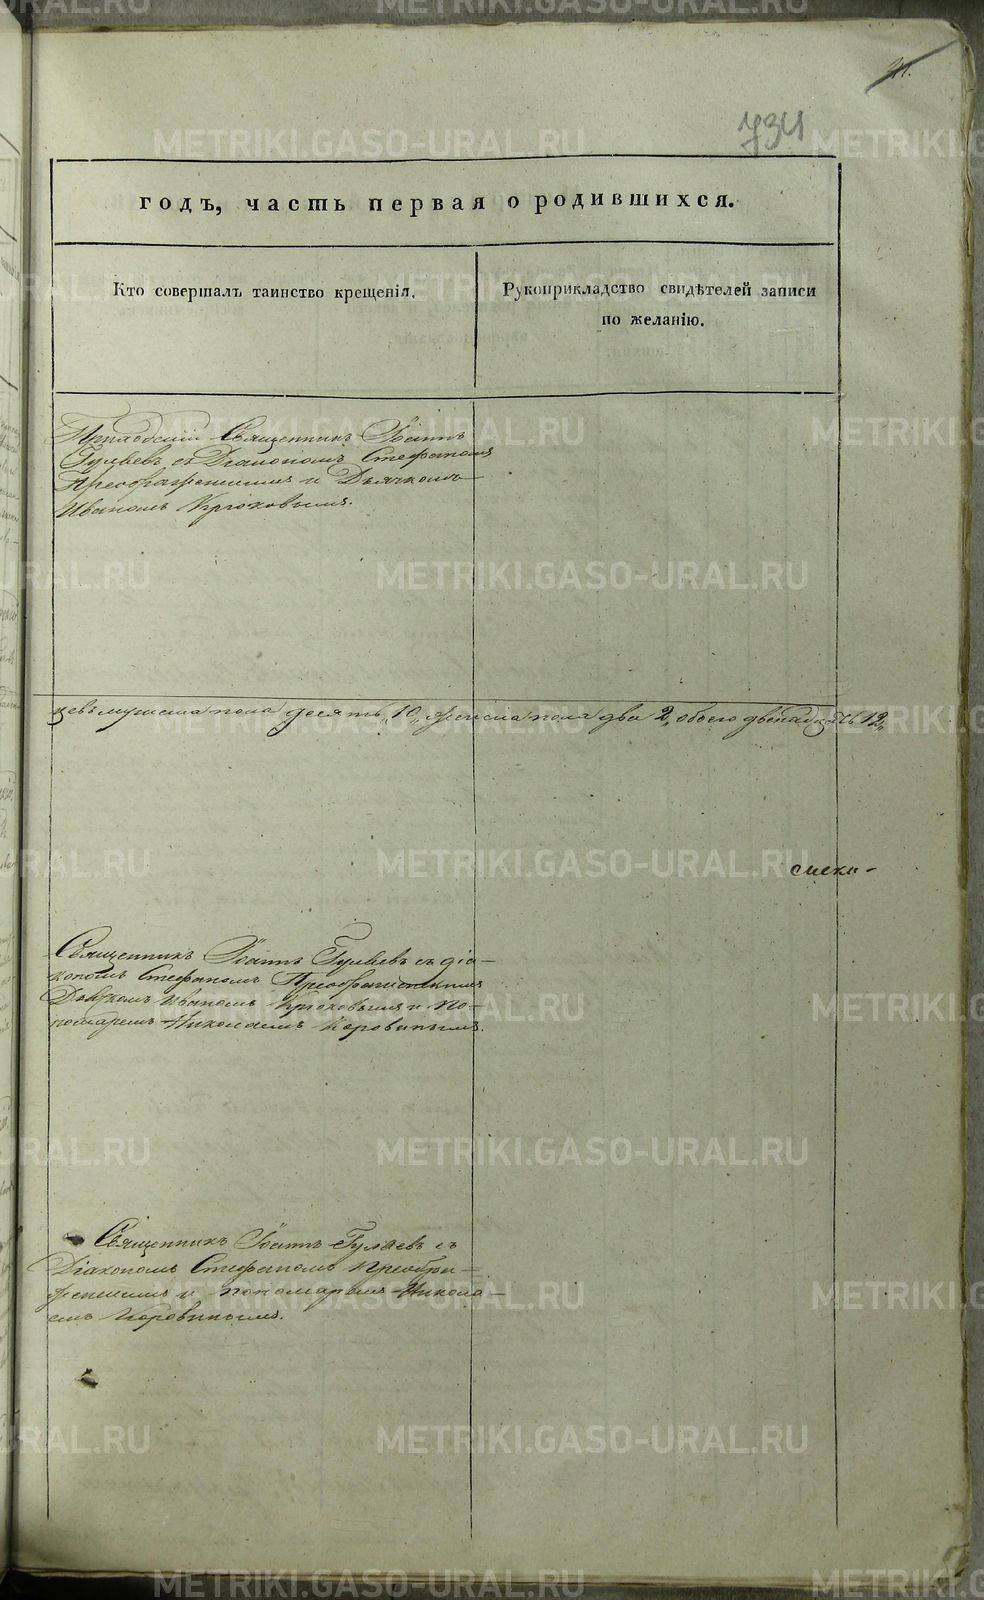 734
годъ, часть первая о родившихся.
Кто совершалъ таинство крещенія.
Рукоприкладство свидѣтелей записи
по желанію.
Приходскій Священникъ Іоаннъ
Гуляевъ съ Діакономъ Стефаномъ
Преображенскимъ и Дьячкомъ
Иваномъ Крюковымъ.
цевъ мужеска пола десять „10„ женска пола два 2, обоего двенадцать 12„
Священникъ Іоаннъ Гуляевъ съ діа-
кономъ Стефаномъ Преображенскимъ
Дьячкомъ Иваномъ Крюковымъ и По-
номаремъ Николаемъ Коровинымъ.
Священникъ Іоаннъ Гуляевъ съ
Діакономъ Стефаномъ Преобра-
женскимъ и пономаремъ Никола-
емъ Коровинымъ.
METRIKI.GASO-URAL.RU